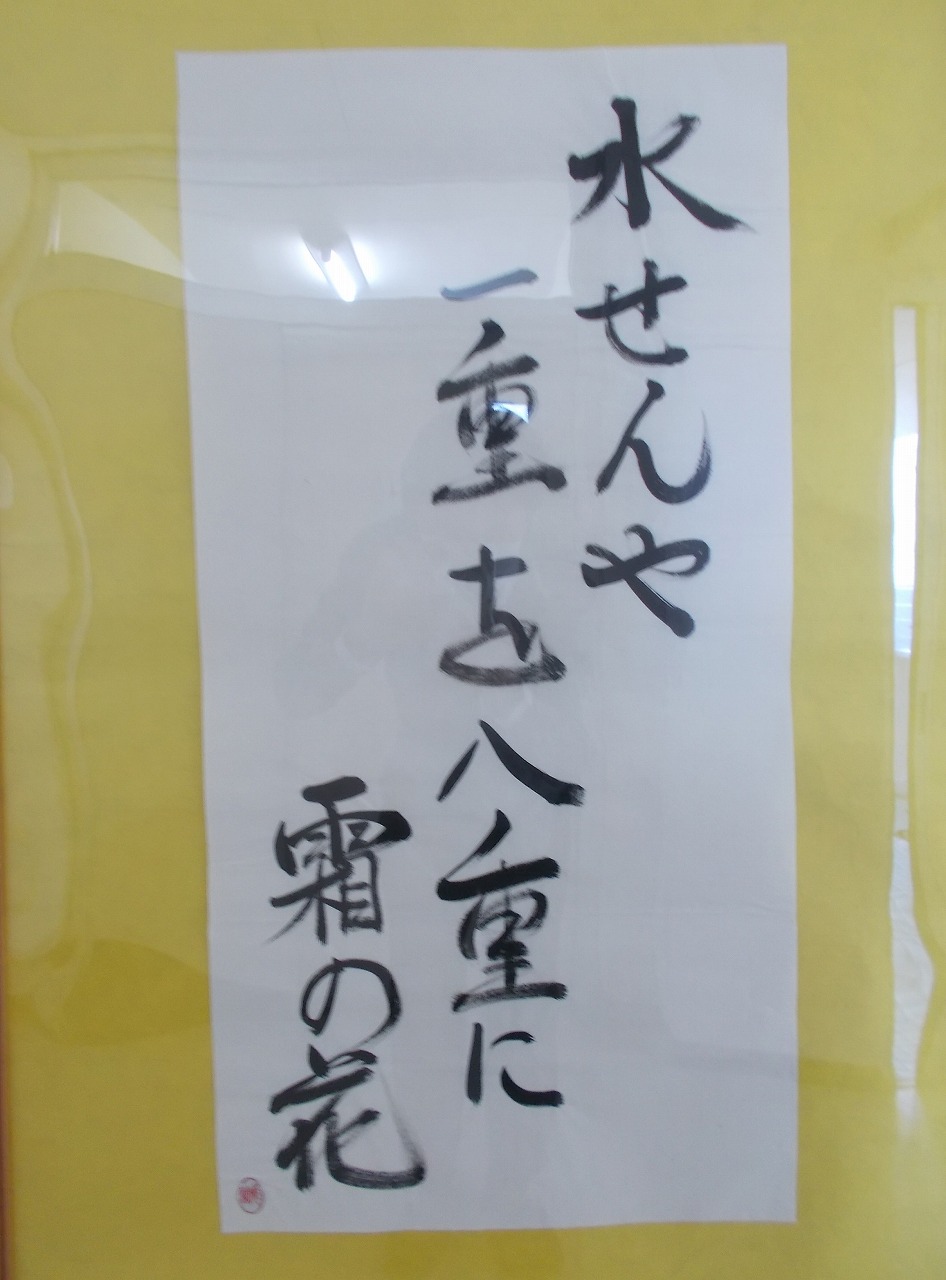 水せんや
一重を八重に
霜の花